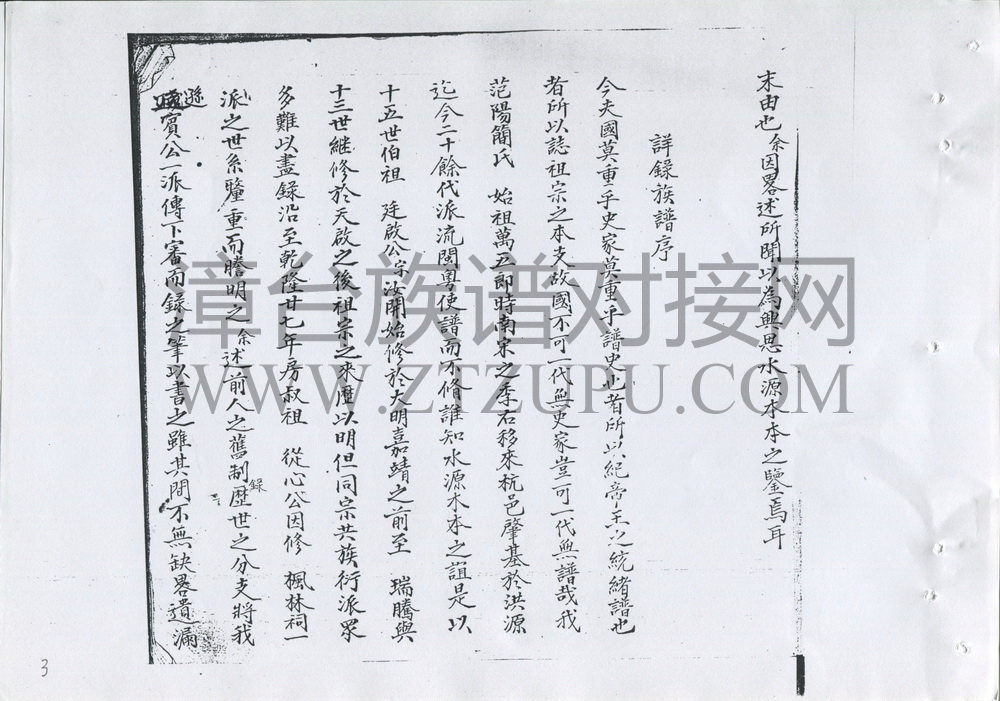 末由也余因畧述所聞以為興思水源木本之鑒焉耳
詳錄族譜序
今夫國莫重乎史家莫重乎譜史也者所以紀帝王之統緒譜也
者所以誌祖宗之本支故國不可一代無史家豈可一代無譜哉我
范陽簡氏 始祖萬五郎時南宋之季石移來杭邑肇基於洪源
迄今二十餘代派流閩粵使譜而不脩誰知水源木本之誼是以
十五世伯祖 廷啟公字汝開始修於大明嘉靖之前至 瑞騰與
十三世継修於天啟之後祖宗之來歷以明但同宗共族衍派眾
多難以盡錄沿至乾隆廿七年房叔祖 從心公因修 楓林祠一
派之世系釐重而謄明之余述前人之舊制錄歷世之分支將我
遜賓公一派傳下審而錄之筆以書之雖其間不無缺畧遺漏
章台族谱对接网
WWW.ZTZUPU.COM
3